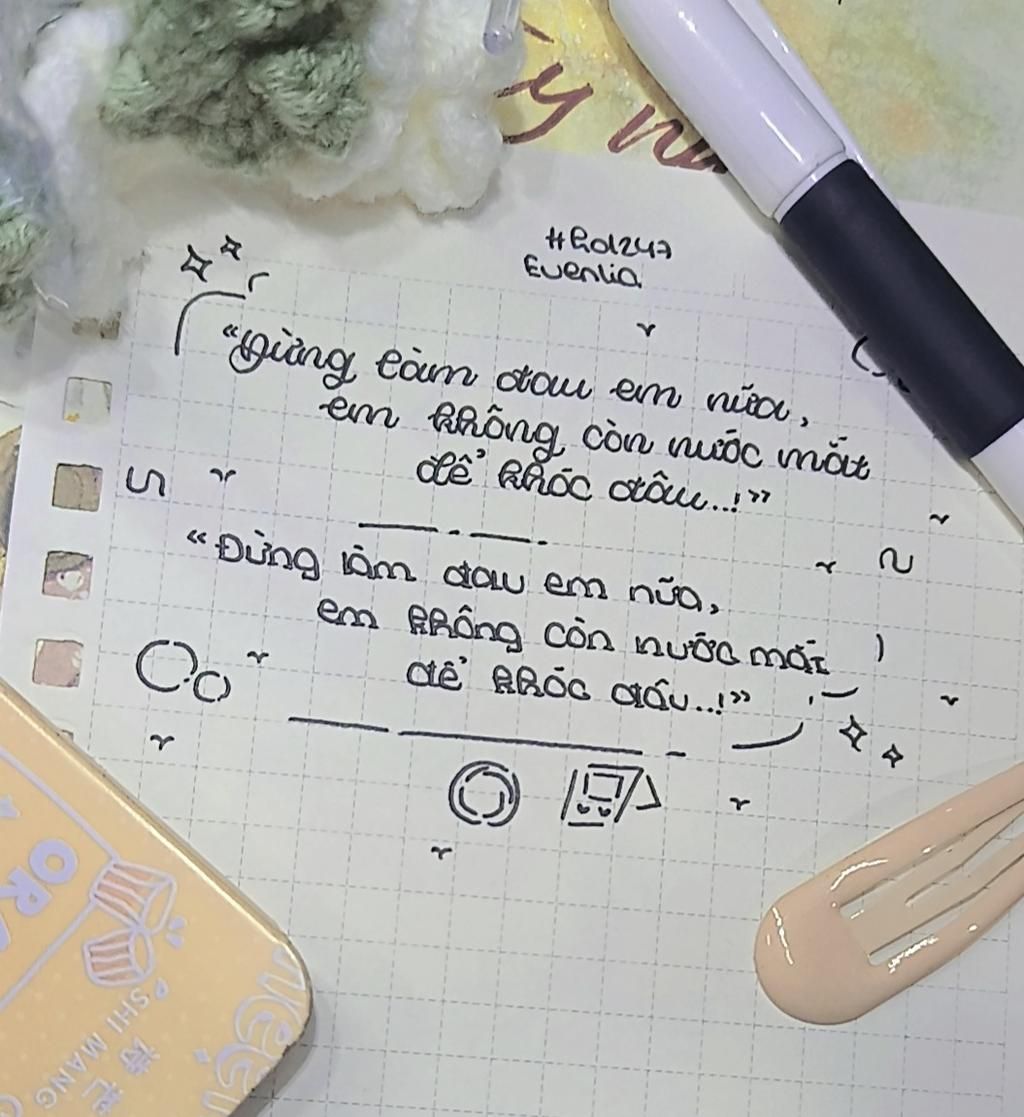 #Rd247
Evenlia
“Đừng làm đau em nữa,
em không còn nước mắt
để khóc đâu...!”
“Đừng làm đau em nữa,
em không còn nước mắt
để khóc đâu...!”
SHI MANG